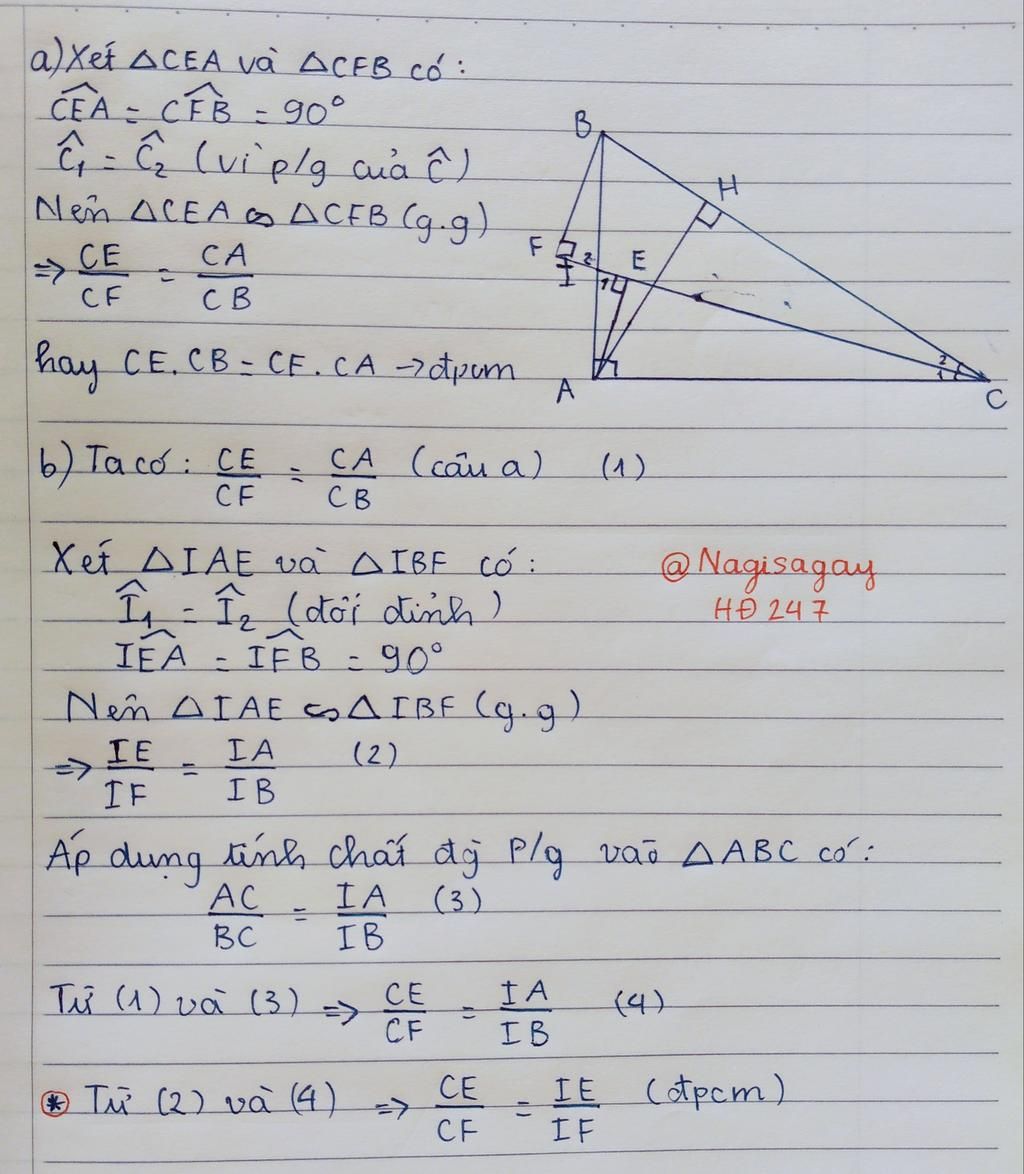 a) Xét △CEA và △CFB có:
\widehat{CEA} = \widehat{CFB} = 90°
Ĉ₁ = Ĉ₂ (vì p/g của Ĉ)
Nên △CEA ∽ △CFB (g.g)
⇒ CE/CF = CA/CB
hay CE.CB = CF.CA → đpcm
B
H
F
2
E
I
1
A
2
1
C
b) Ta có: CE/CF = CA/CB (câu a) (1)
Xét △IAE và △IBF có:
@Nagisagay
Î₁ = Î₂ (đối đỉnh)
HĐ247
\widehat{IEA} = \widehat{IFB} = 90°
Nên △IAE ∽ △IBF (g.g)
⇒ IE/IF = IA/IB (2)
Áp dụng tính chất đg p/g vào △ABC có:
AC/BC = IA/IB (3)
Từ (1) và (3) ⇒ CE/CF = IA/IB (4)
* Từ (2) và (4) ⇒ CE/CF = IE/IF (đpcm)